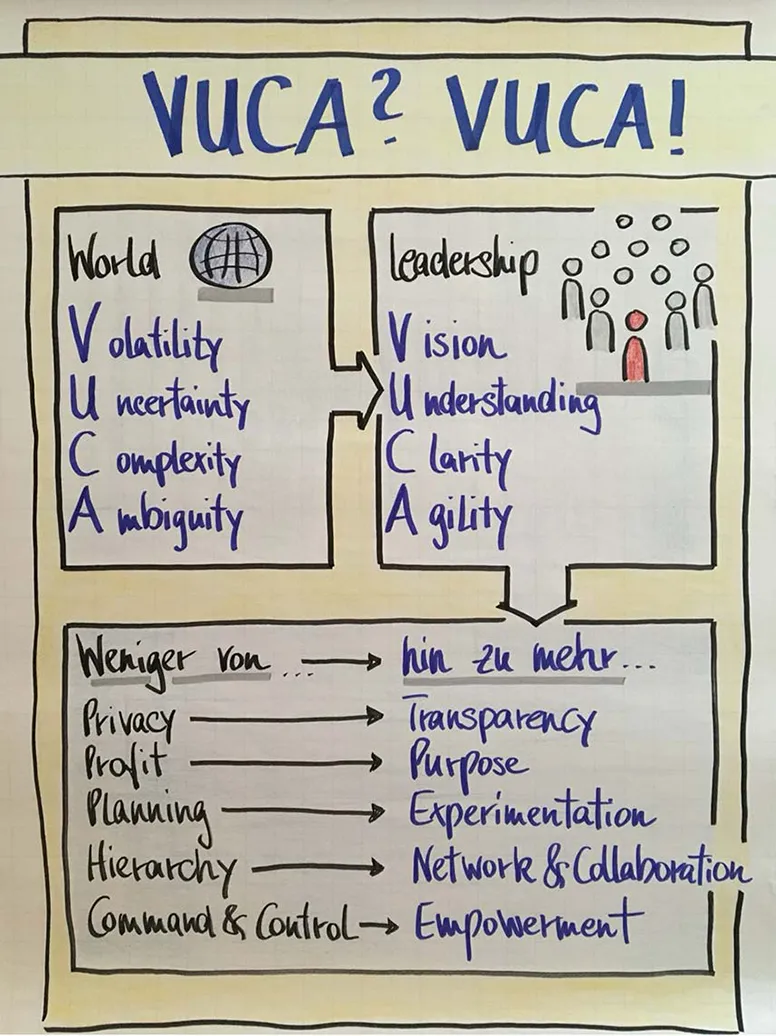 VUCA? VUCA!
World
Volatility
Uncertainty
Complexity
Ambiguity
Leadership
Vision
Understanding
Clarity
Agility
Weniger von ... → hin zu mehr...
Privacy → Transparency
Profit → Purpose
Planning → Experimentation
Hierarchy → Network & Collaboration
Command & Control → Empowerment